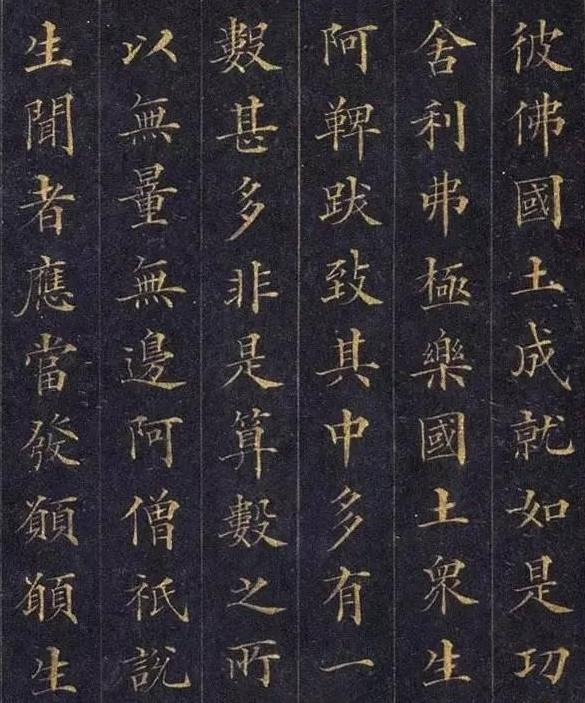 彼佛國土成就如是功
舍利弗極樂國土眾生
阿鞞跋致其中多有一
數甚多非是算數之所
以無量無邊阿僧祇說
生聞者應當發願願生